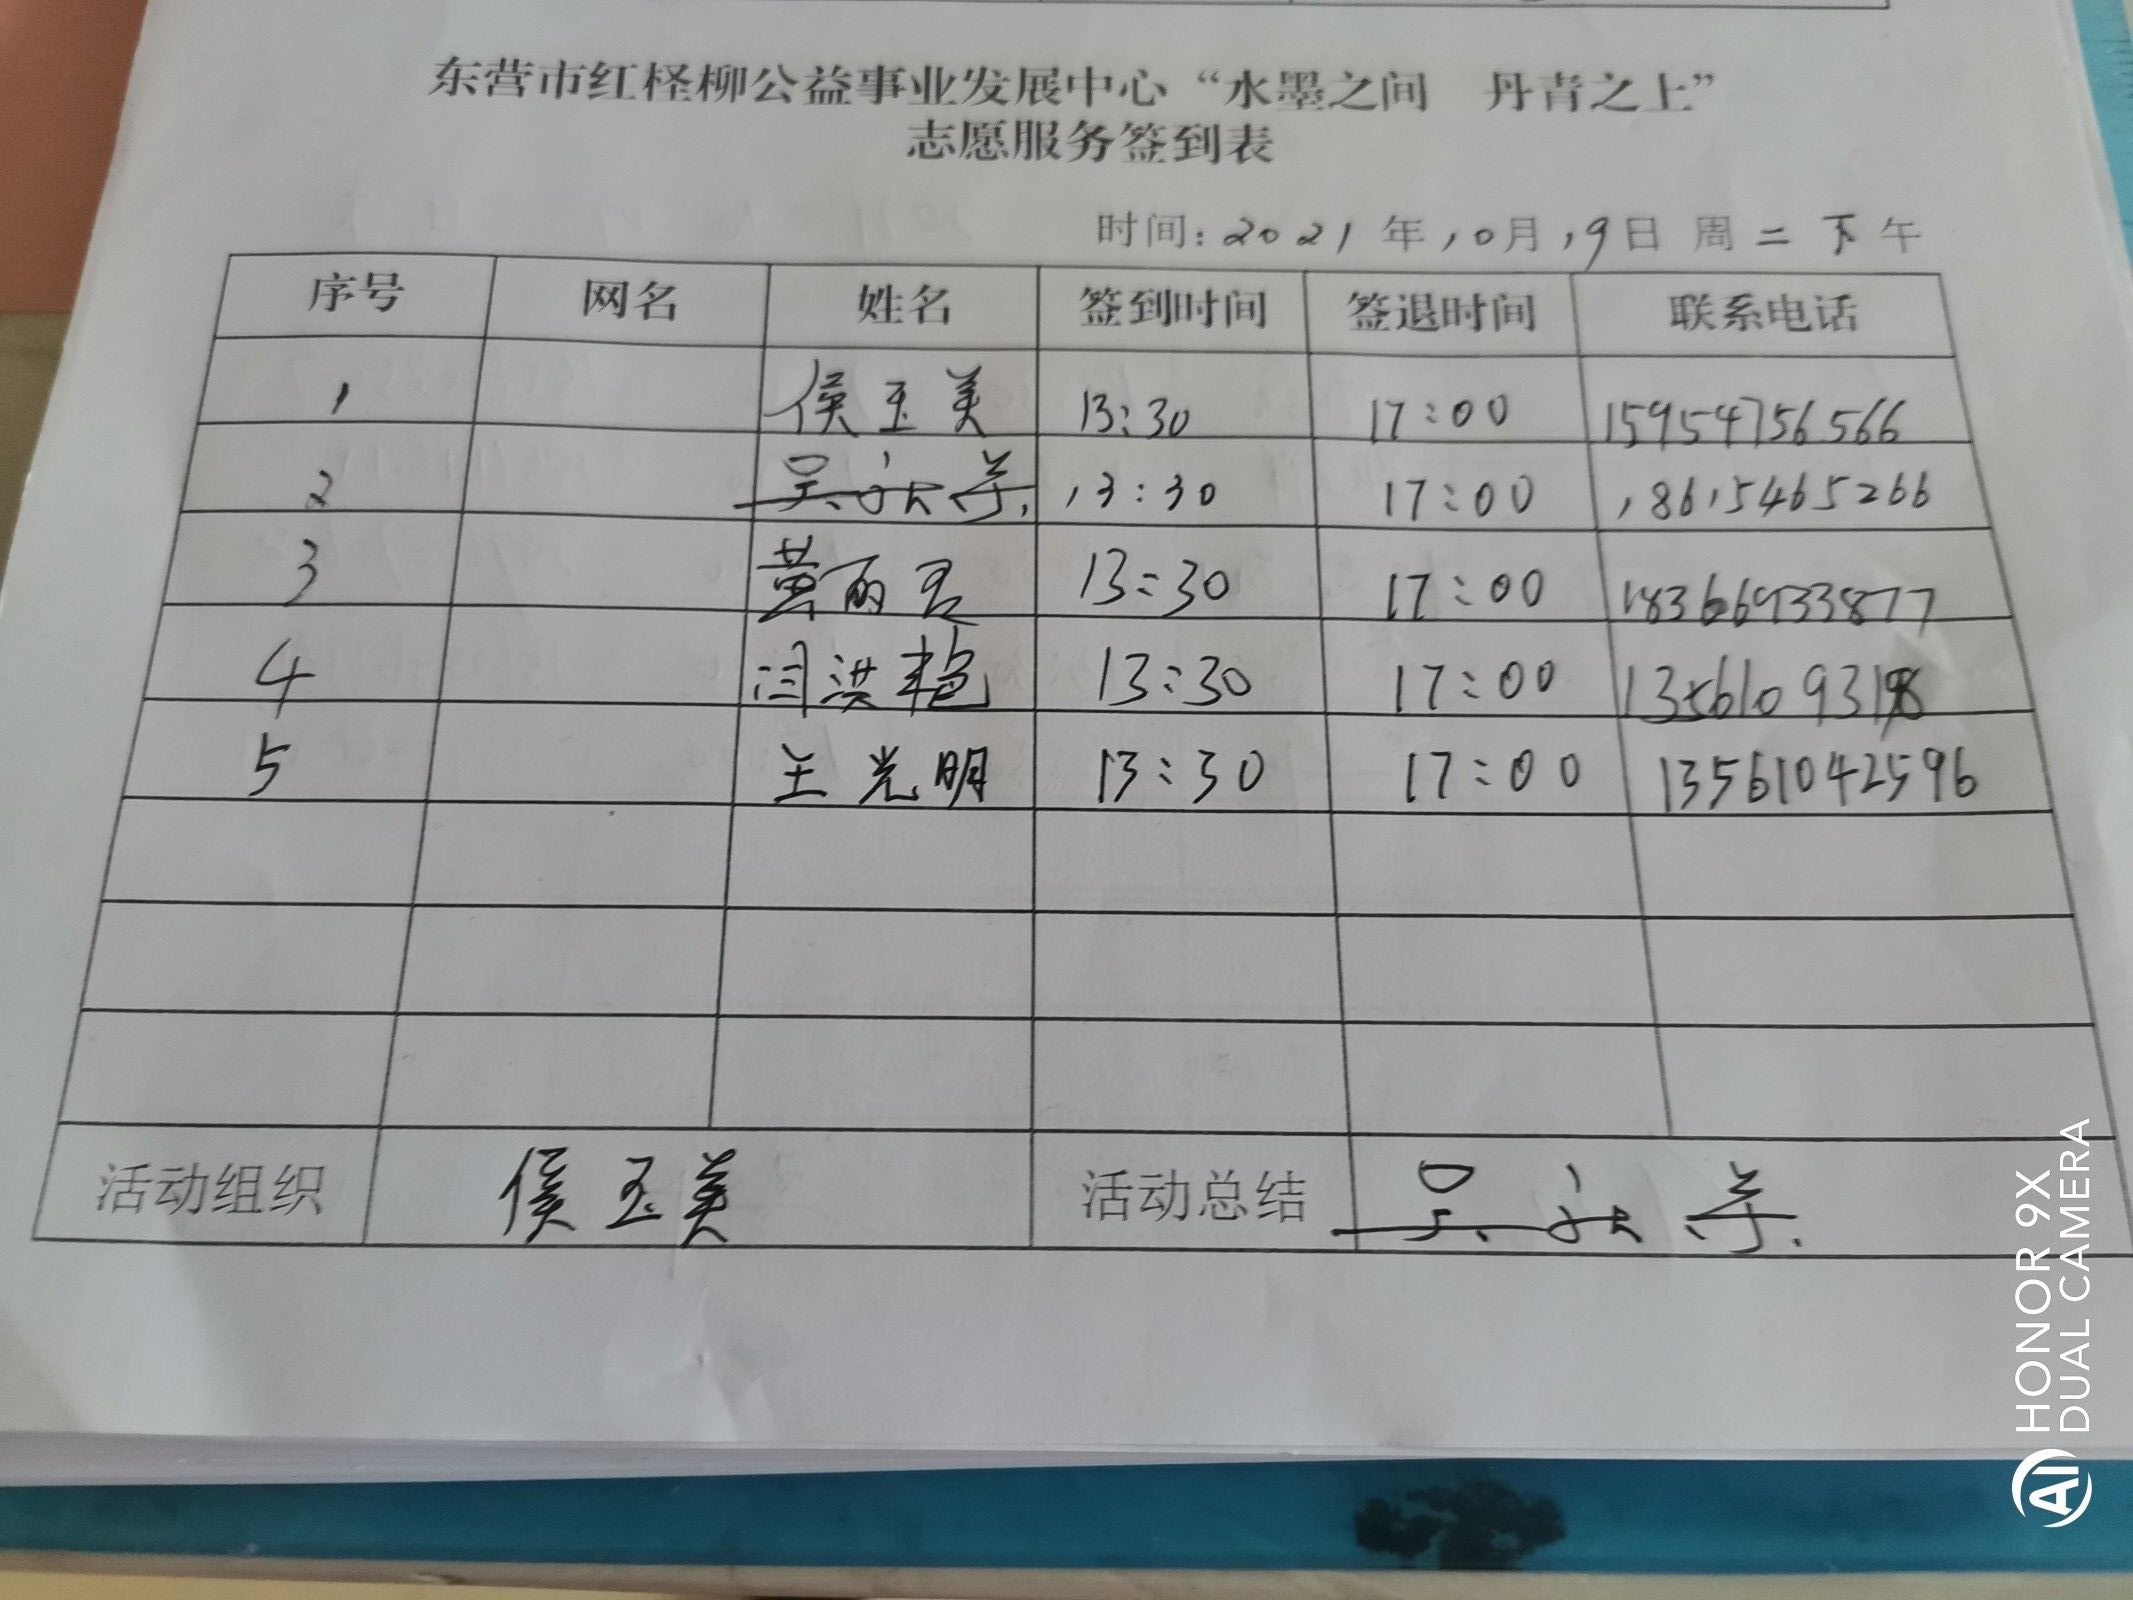 东营市红柽柳公益事业发展中心“水墨之间 丹青之上”
志愿服务签到表
时间：2021年10月19日 周二下午
序号 网名 姓名 签到时间 签退时间 联系电话
1 侯玉美 13:30 17:00 15954756566
2 吴永 13:30 17:00 18615465266
3 黄丽君 13:30 17:00 18366933877
4 闫洪艳 13:30 17:00
5 王光明 13:30 17:00 13561042596
活动组织 侯玉美 活动总结 吴永
HONOR 9X
DUAL CAMERA
AI